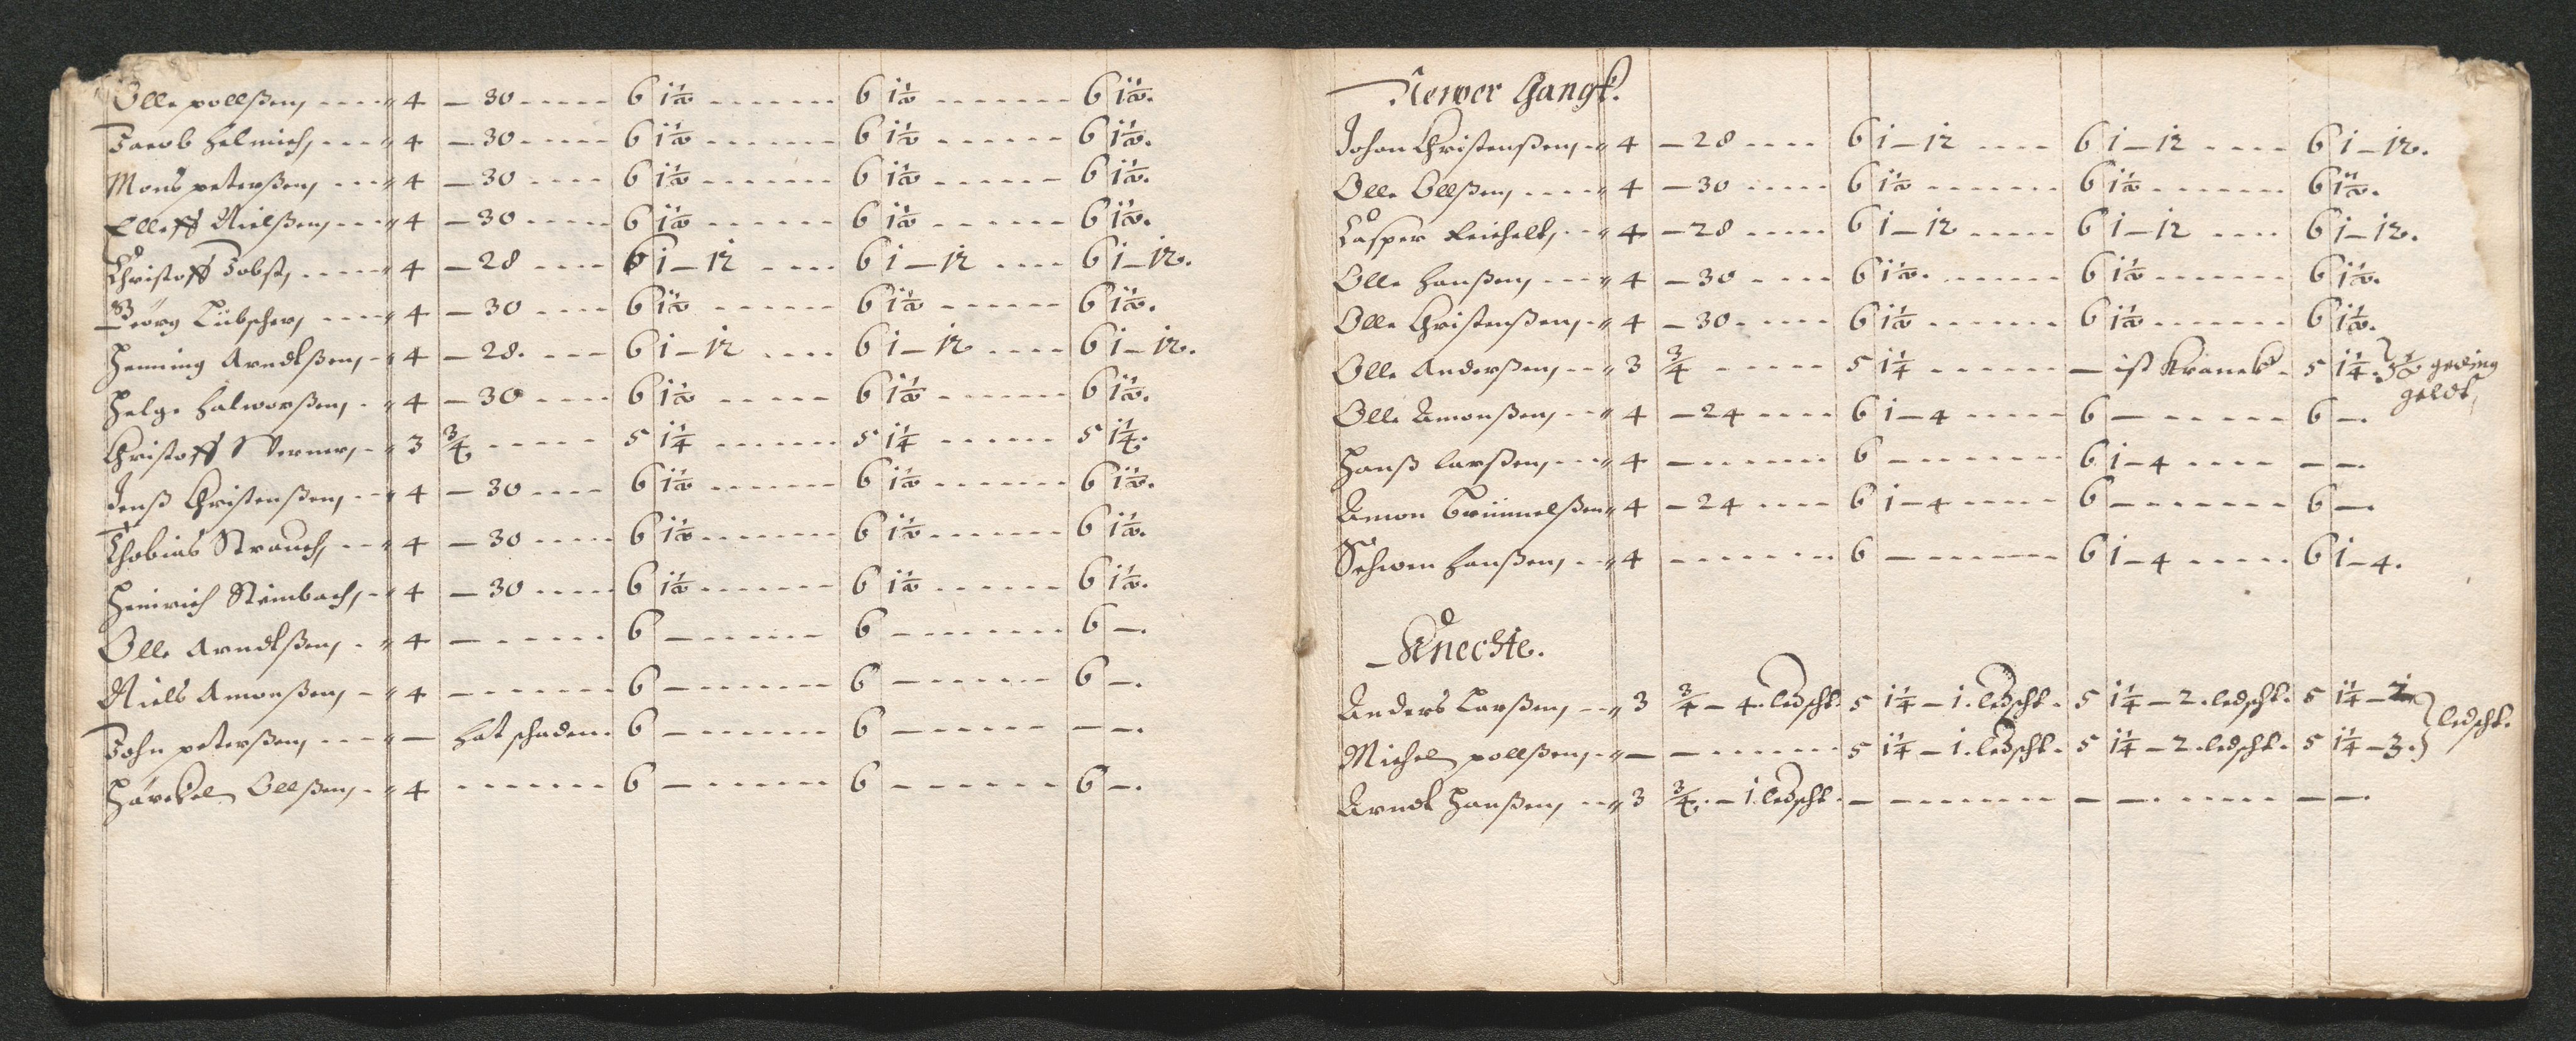 Olle pollßen, ---- 4 — 30 ----- 6 1½ ------- 6 1½ ------- 6 1½.
Jacob helmich, --- 4 — 30 ----- 6 1½ ------- 6 1½ ------ 6 1½.
Mons peterßen, --- 4 — 30 ---- 6 1½ ------- 6 1½ ------ 6 1½.
Elleff Nielßen, --- 4 — 30 ---- 6 1½ ------ 6 1½ ------ 6 1½.
Christoff Jobst, ---- 4 — 28 ---- 6 1 — 12 ---- 6 1 — 12 ---- 6 1 — 12.
Georg Lübscher, ---- 4 — 30 ---- 6 1½ ------ 6 1½ ------ 6 1½.
Henning Arndtßen, - 4 — 28. --- 6 1 — 12 ---- 6 1 — 12 ---- 6 1 — 12.
Helge halworßen, - 4 — 30 ---- 6 1½ ----- 6 1½ ------ 6 1½.
Christoff Werner, - 3 ¾ ----- 5 1¼ ------ 5 1¼ ------ 5 1¼.
Jenß Christenßen, -- 4 — 30 ---- 6 1½ ------ 6 1½ ------ 6 1½.
Thobias Strauch, -- 4 — 30 ----- 6 1½ ------ 6 1½ ------ 6 1½.
Heinrich Steinbach, - 4 — 30 ----- 6 1½ ------ 6 1½ ------ 6 1½.
Olle Arndtßen, - 4 — ------ 6 — ------ 6 — ------ 6 —.
Niels Amonßen, - 4 — ------ 6 — ------ 6 — ------ 6 —.
John peterßen, --- — hat schaden. 6 — ------ 6 — ------ — —.
Härckel Ollßen, - 4 ------- 6 — ------ 6 — ------ 6 —.
Newer Gangk.
Johan Christenßen, - 4 — 28 ---- 6 1 — 12 ---- 6 1 — 12 ---- 6 1 — 12.
Olle Ollßen, ---- 4 — 30 ----- 6 1½ ------- 6 1½ ------- 6 1½.
Casper Reichelt, -- 4 — 28 ----- 6 1 — 12 ----- 6 1 — 12 ---- 6 1 — 12.
Olle hanßen, --- 4 — 30 ---- 6 1½. ------ 6 1½ ------- 6 1½.
Olle Christenßen, - 4 — 30 ----- 6 1½ ------- 6 1½ ------- 6 1½.
Olle Anderßen, -- 3 ¾ ----- 5 1¼ ------ — ist Kranck. 5 1¼. } 3½ geding
geldt,
Olle Amonßen, -- 4 — 24 ---- 6 1 — 4 ----- 6 — ------ 6 —.
Hanß larßen, --- 4 — ------ 6 — ------ 6 1 — 4 ---- — —.
Amon Trümmelßen 4 — 24 ---- 6 1 — 4 ----- 6 — ------ 6 —.
Schwen hanßen, -- 4 ------- 6 — ------ 6 1 — 4 ----- 6 1 — 4.
Knechte.
Anders Larßen, -- 3 ¾ — 4. ledscht. 5 1¼ — 1. ledscht. 5 1¼ — 2. ledscht. 5 1¼ — 2 } ledscht.
Michel pollßen, - — — ------ 5 1¼ — 1. ledscht. 5 1¼ — 2. ledscht. 5 1¼ — 3. }
Arndt Hanßen, -- 3 ¾. — 1. ledscht. — — ------ — —. ----- — —.